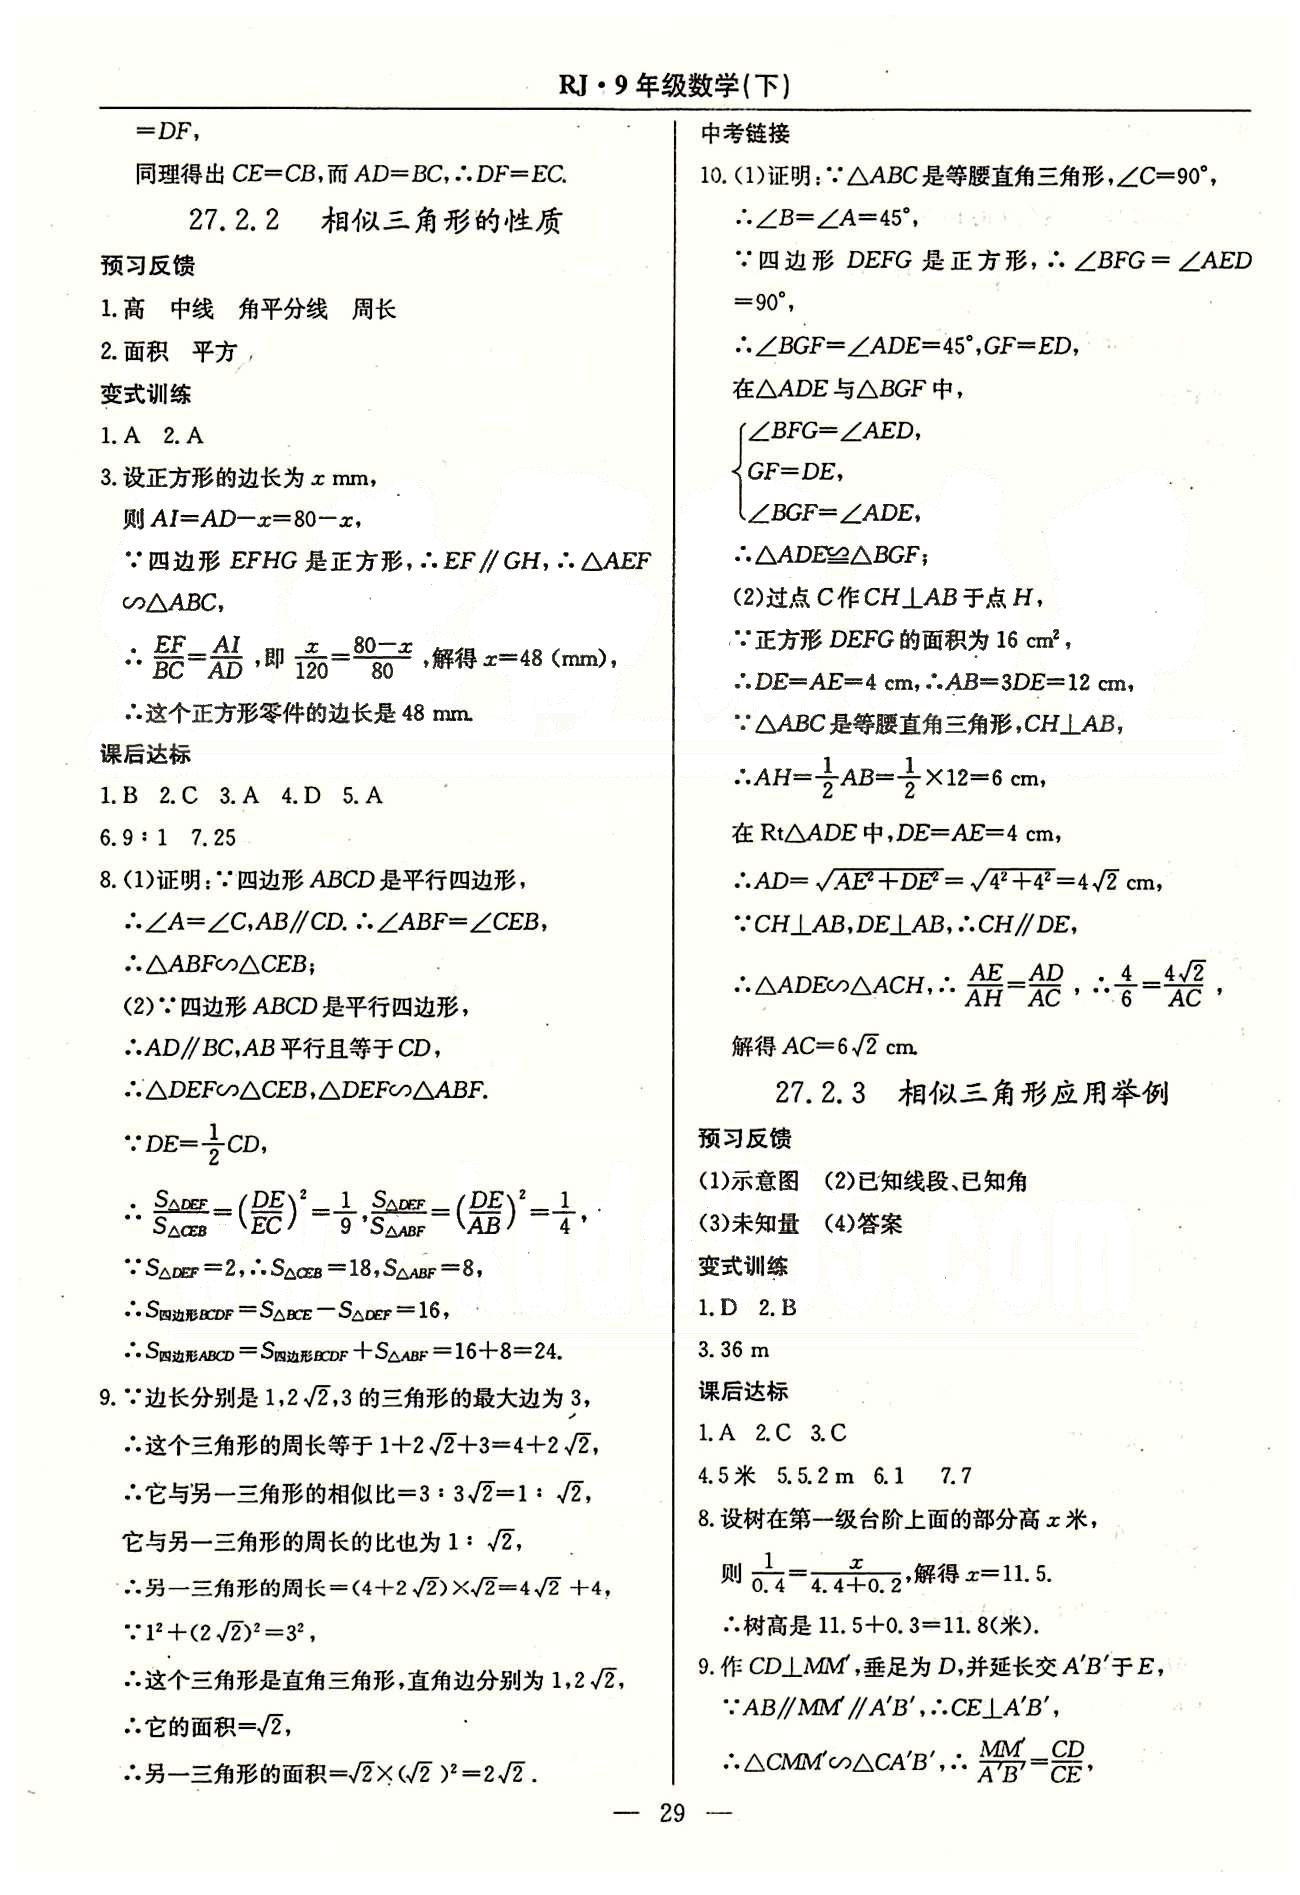 RJ·9年级数学(下)
=DF,
同理得出CE=CB,而AD=BC,∴DF=EC.
27.2.2 相似三角形的性质
预习反馈
1.高 中线 角平分线 周长
2.面积 平方
变式训练
1.A 2.A
3.设正方形的边长为x mm,
则AI=AD-x=80-x,
∵四边形EFHG是正方形,∴EF∥GH,∴△AEF
∽△ABC,
∴EF/BC=AI/AD,即x/120=(80-x)/80,解得x=48 (mm),
∴这个正方形零件的边长是48 mm.
课后达标
1.B 2.C 3.A 4.D 5.A
6.9∶1 7.25
8.(1)证明:∵四边形ABCD是平行四边形,
∴∠A=∠C,AB∥CD.∴∠ABF=∠CEB,
∴△ABF∽△CEB;
(2)∵四边形ABCD是平行四边形,
∴AD∥BC,AB平行且等于CD,
∴△DEF∽△CEB,△DEF∽△ABF.
∵DE=1/2CD,
∴S△DEF/S△CEB=(DE/EC)²=1/9,S△DEF/S△ABF=(DE/AB)²=1/4,
∵S△DEF=2,∴S△CEB=18,S△ABF=8,
∴S四边形BCDF=S△BCE-S△DEF=16,
∴S四边形ABCD=S四边形BCDF+S△ABF=16+8=24.
9.∵边长分别是1,2√2,3的三角形的最大边为3,
∴这个三角形的周长等于1+2√2+3=4+2√2,
∴它与另一三角形的相似比=3∶3√2=1∶√2,
它与另一三角形的周长的比也为1∶√2,
∴另一三角形的周长=(4+2√2)×√2=4√2+4,
∵1²+(2√2)²=3²,
∴这个三角形是直角三角形,直角边分别为1,2√2,
∴它的面积=√2,
∴另一三角形的面积=√2×(√2)²=2√2.
中考链接
10.(1)证明:∵△ABC是等腰直角三角形,∠C=90°,
∴∠B=∠A=45°,
∵四边形DEFG是正方形,∴∠BFG=∠AED
=90°,
∴∠BGF=∠ADE=45°,GF=ED,
在△ADE与△BGF中,
{∠BFG=∠AED,
GF=DE,
∠BGF=∠ADE,
∴△ADE≌△BGF;
(2)过点C作CH⊥AB于点H,
∵正方形DEFG的面积为16 cm²,
∴DE=AE=4 cm,∴AB=3DE=12 cm,
∵△ABC是等腰直角三角形,CH⊥AB,
∴AH=1/2AB=1/2×12=6 cm,
在Rt△ADE中,DE=AE=4 cm,
∴AD=√(AE²+DE²)=√(4²+4²)=4√2 cm,
∵CH⊥AB,DE⊥AB,∴CH∥DE,
∴△ADE∽△ACH,∴AE/AH=AD/AC,∴4/6=4√2/AC,
解得AC=6√2 cm.
27.2.3 相似三角形应用举例
预习反馈
(1)示意图 (2)已知线段、已知角
(3)未知量 (4)答案
变式训练
1.D 2.B
3.36 m
课后达标
1.A 2.C 3.C
4.5米 5.5.2 m 6.1 7.7
8.设树在第一级台阶上面的部分高x米,
则1/0.4=x/(4.4+0.2),解得x=11.5.
∴树高是11.5+0.3=11.8(米).
9.作CD⊥MM′,垂足为D,并延长交A′B′于E,
∵AB∥MM′∥A′B′,∴CE⊥A′B′,
∴△CMM′∽△CA′B′,∴MM′/A′B′=CD/CE,
— 29 —